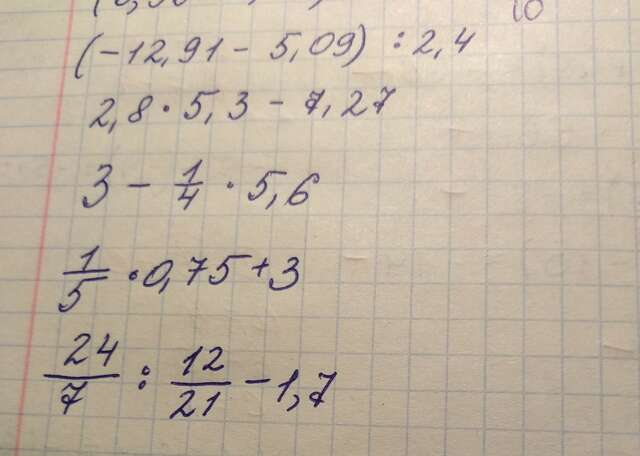 (-12,91 - 5,09) : 2,4
2,8 · 5,3 - 7,27
3 - 1/4 · 5,6
1/5 · 0,75 + 3
24/7 : 12/21 - 1,7